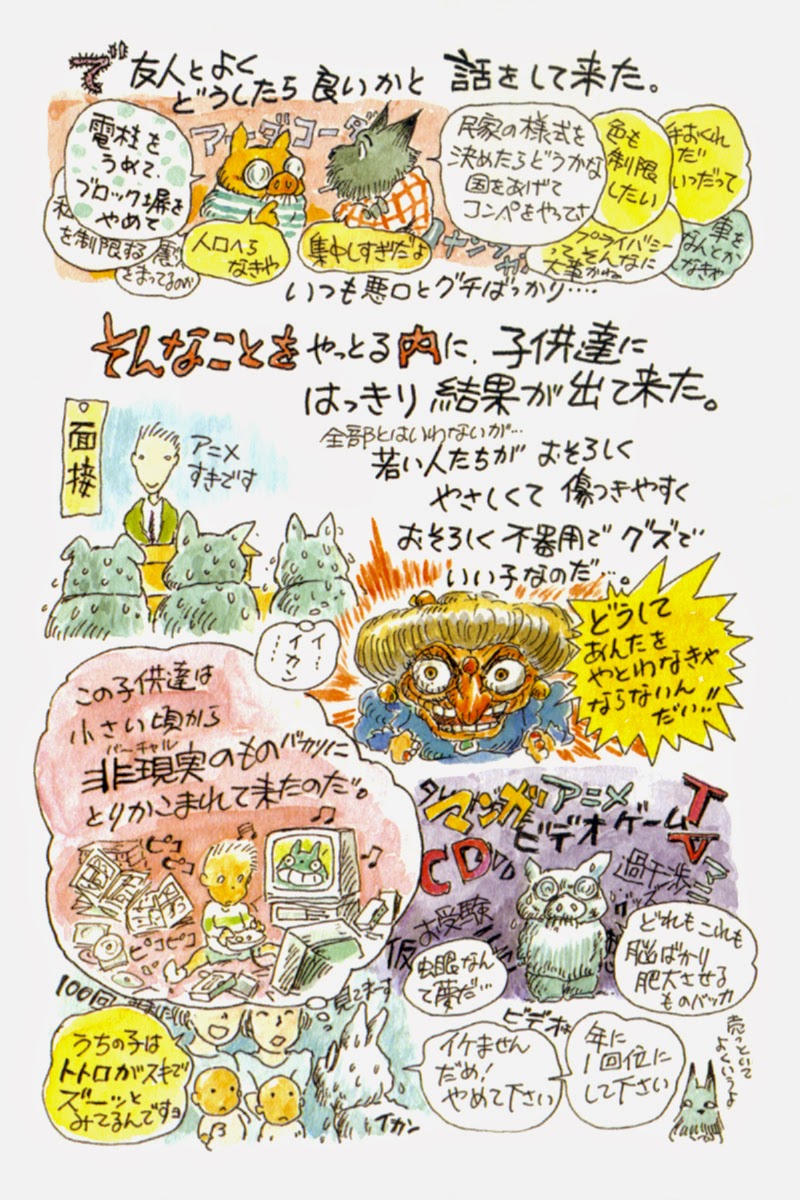 で友人とよく
どうしたら良いかと話をして来た。
電柱を
うめて、
ブロック塀を
やめて
人口へら
なきゃ
集中しすぎだよ
民家の様式を
決めたらどうかな
国をあげて
コンペをやってさ
色も
制限
したい
手おくれ
だ
いつだって
を制限する
プライバシー
ってそんなに
大事かね
車を
なんとか
しなきゃ
いつも悪口とグチばっかり‥‥
そんなことをやっとる内に、子供達に
はっきり結果が出て来た。
全部とはいわないが…
若い人たちがおそろしく
やさしくて傷つきやすく
おそろしく不器用でグズで
いい子なのだ…。
面接
アニメ
すきです
イ…
…イカン
どうして
あんたを
やとわなきゃ
ならないん
だい!!
この子供達は
小さい頃から
バーチャル
非現実のものバカリに
とりかこまれて来たのだ。
ピコ
ピコ
ピコピコ
TV
マンガ
アニメ
ビデオゲーム
CD
過干渉
グッズ
お受験
仮
虫眼なん
て夢だ…
どれもこれも
脳ばかり
肥大させる
ものバッカ
100回
見てます
うちの子は
トトロがスキで
ズーッと
みてるんですョ
イカン
イケません
だめ!
やめて下さい
ビデオは
年に
1回位に
して下さい
売っといて
よくいうよ